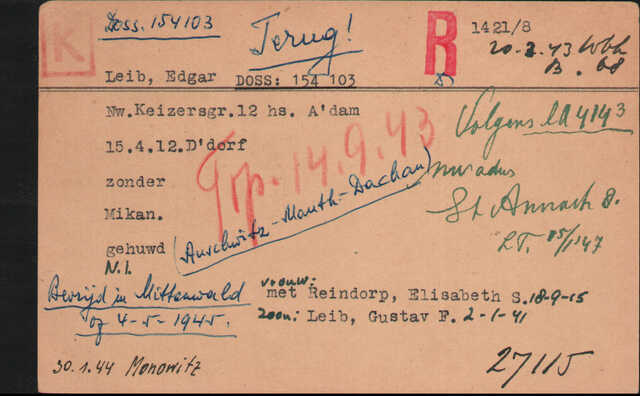 Doss. 154103
Terug!
K
R
1421/8
20-2.43 Wbk
B. 68
Leib, Edgar DOSS: 154 103
Nw.Keizersgr.12 hs. A'dam
Volgens LA4143
15.4.12.D'dorf
Trp. 14.9.43
zonder
nw adres
Mikan.
St Annastr 8.
gehuwd
(Auschwitz-Mauth-Dachau)
LT. 05/1'47
N.I.
Bevrijd in Mittenwald
op 4-5-1945.
vrouw:
met Reindorp, Elisabeth S. 18-9-15
zoon: Leib, Gustav F. 2-1-41
30.1.44 Monowitz
27115